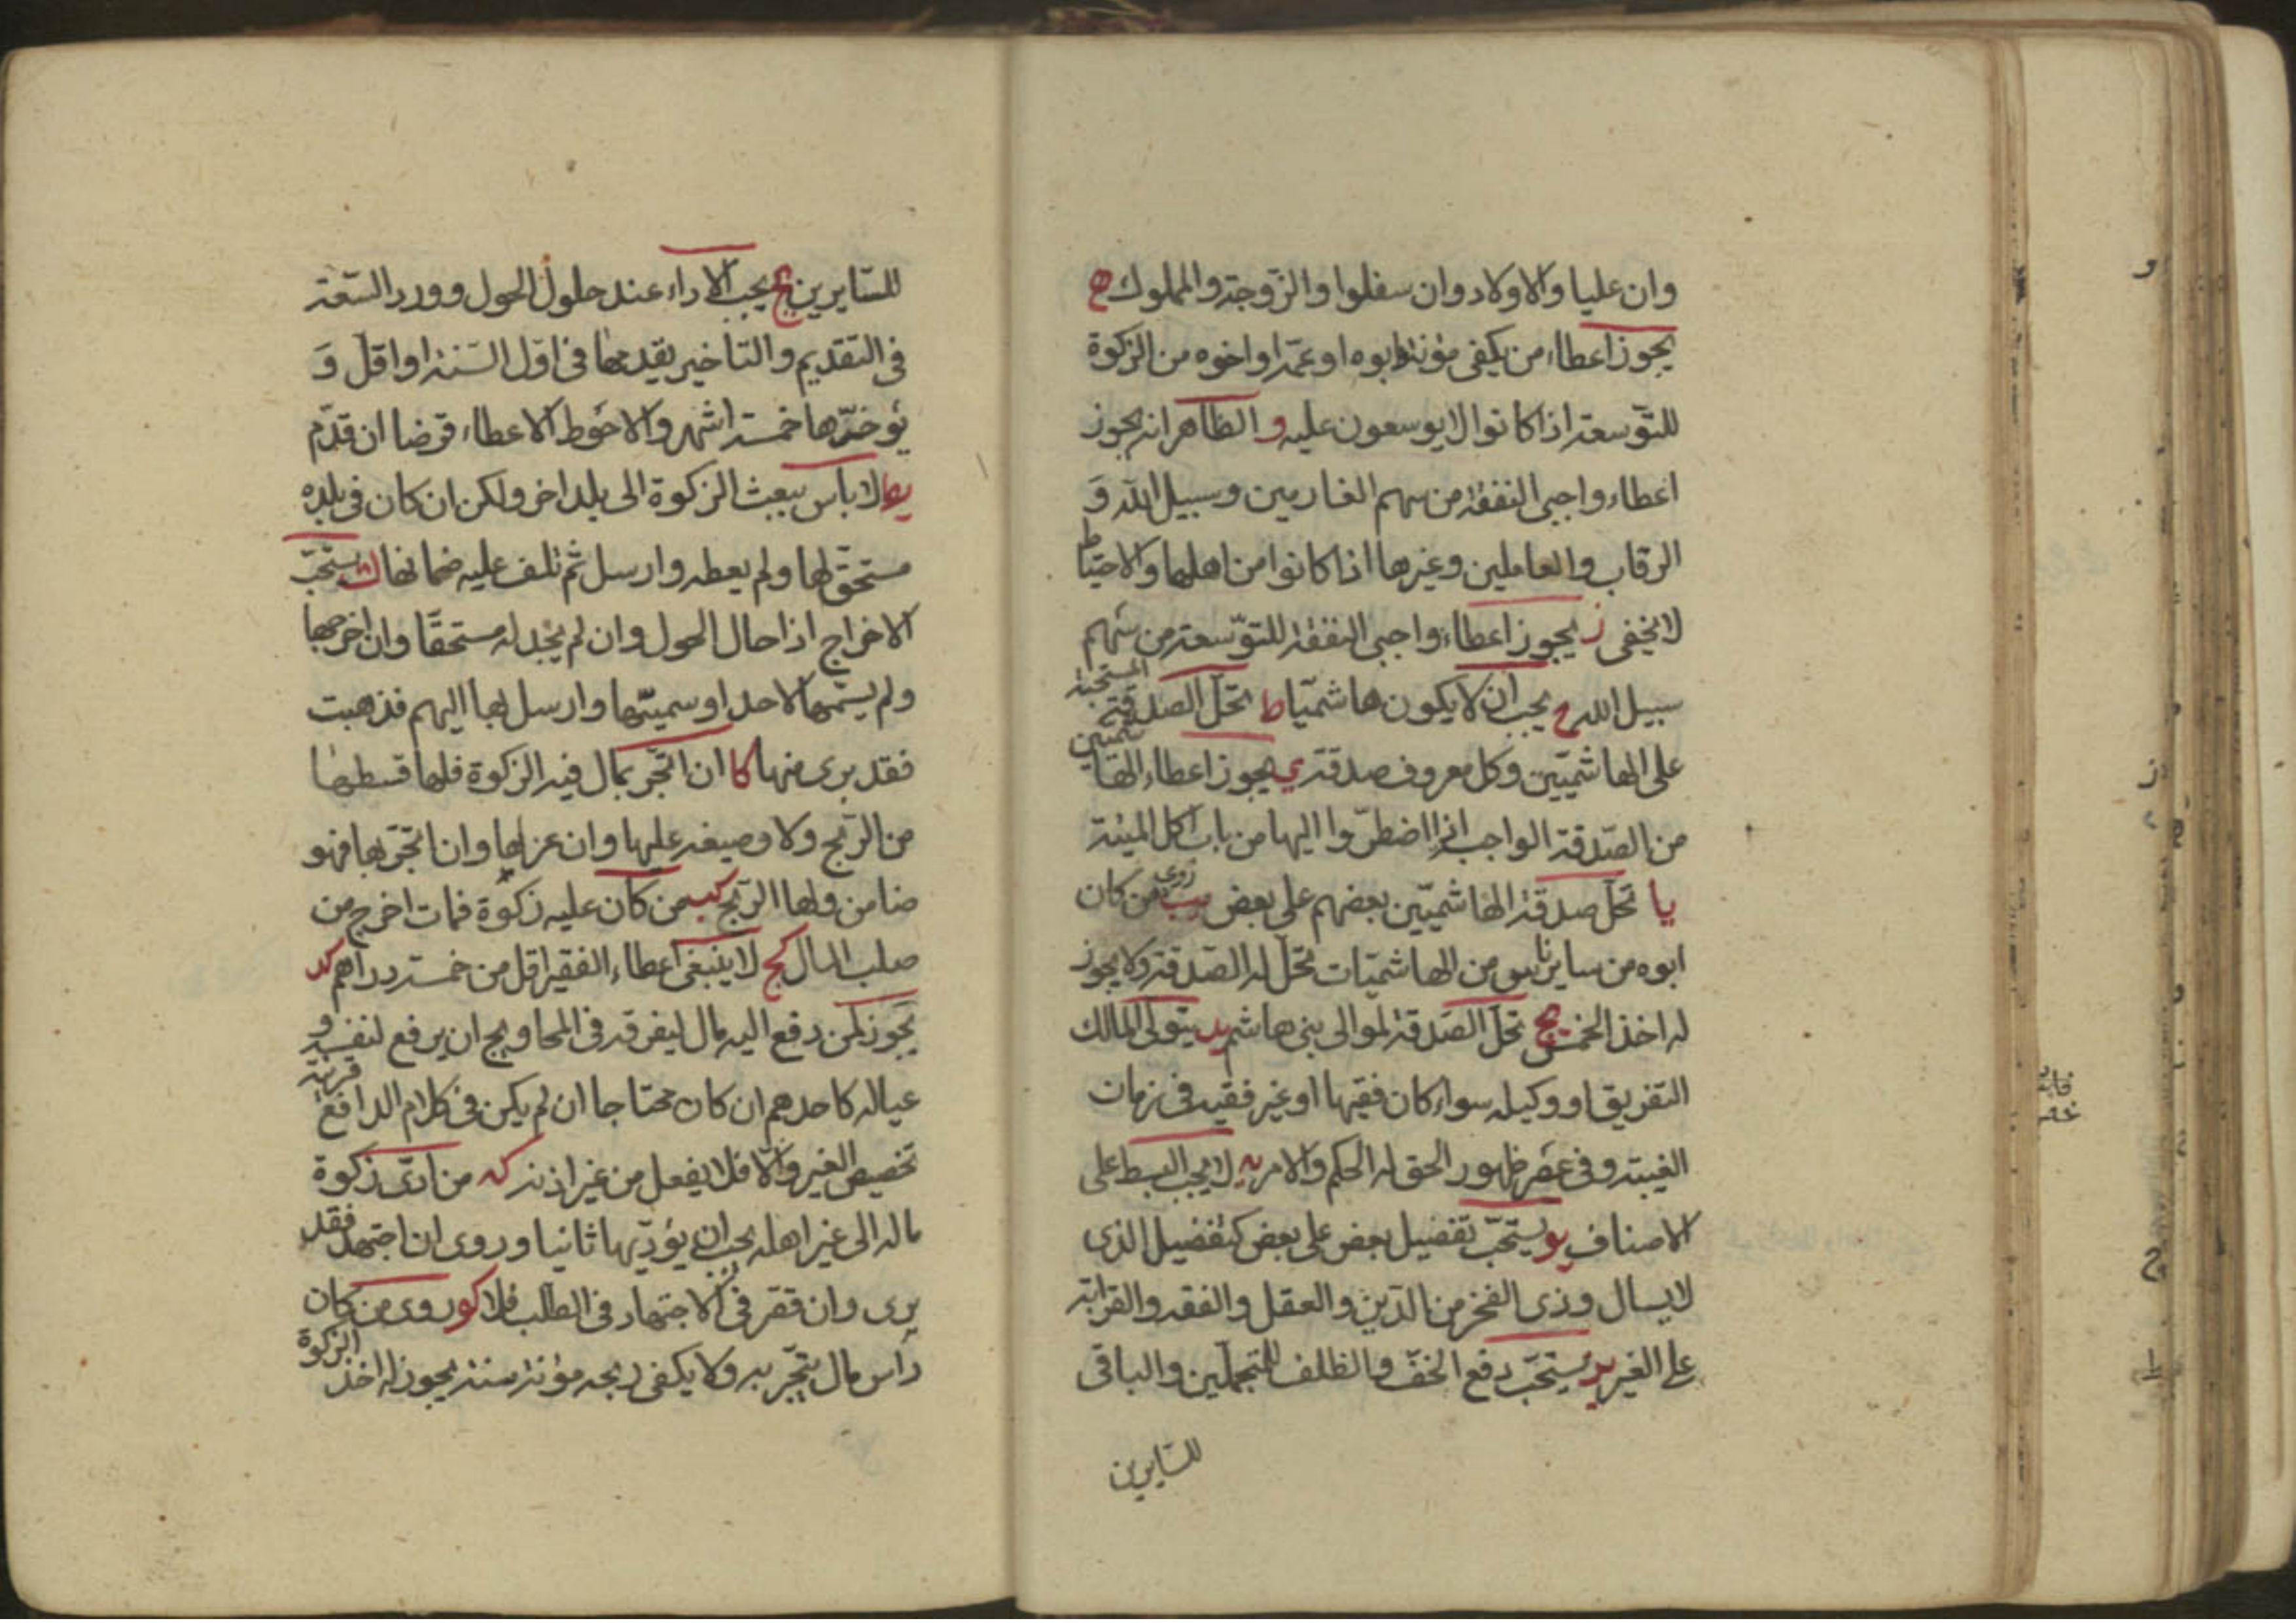 وان عليا والاولاد وان سفلوا والزوجة والمملوك ه
يجوز اعطاء من يكفى مؤنته ابوه او عمه او اخوه من الزكوة
للتوسعة اذا كانوا لا يوسعون عليه و الظاهر انه يجوز
اعطاء واجبى النفقة من سهم الغارمين وسبيل الله و
الرقاب والعاملين وغيرها اذا كانوا من اهلها والاحتياط
لا يخفى ز يجوز اعطاء واجبى النفقة للتوسعة من سهم
سبيل الله ح يجب ان لا يكون هاشميا ط تحل الصدقة المستحبة
على الهاشميين وكل معروف صدقة ى يجوز اعطاء الهاشميين
من الصدقة الواجب اذا اضطروا اليها من باب اكل الميتة
يا تحل صدقة الهاشميين بعضهم على بعض يب روى من كان
ابوه من ساير الناس من الهاشميات تحل له الصدقة ولا يجوز
له اخذ الخمس يج تحل الصدقة لموالى بنى هاشم يد يتولى المالك
التفريق او وكيله سواء كان فقيها او غير فقيه فى زمان
الغيبة وفى عصر ظهور الحق له الحكم والامر يه لا يجب البسط على
الاصناف يو يستحب تفضيل بعض على بعض كتفضيل الذى
لا يسال وذى الفخر من الدين والعقل والفقه والقرابة
على الغير يز يستحب دفع الخف والظلف للمتجملين والباقى
للسايرين
للسايرين يح يجب الاداء عند حلول الحول وورد السعة
فى التقديم والتاخير يقدمها فى اول السنة او اقل و
يؤخرها خمسة اشهر والاحوط الاعطاء قرضا ان قدم
يط لا باس ببعث الزكوة الى بلد اخر ولكن ان كان فى بلده
مستحق لها ولم يعطه وارسل ثم تلف عليه ضمانها ك يستحب
الاخراج اذا حال الحول وان لم يجد له مستحقا وان اخرجها
ولم يسمها لاحد او سميتها وارسل بها اليهم فذهبت
فقد برى منها كا ان اتجر بمال فيه الزكوة فلها قسطها
من الربح ولا وضيعة عليها وان عزلها وان اتجر بها فهو
ضامن ولها الربح كب من كان عليه زكوة فمات اخرج من
صلب المال كج لا ينبغى اعطاء الفقير اقل من خمسة دراهم كد
يجوز لمن دفع اليه مال ليفرقه فى المحاويج ان يرفع لنفسه و
عياله كاحدهم ان كان محتاجا ان لم يكن فى كلام الدافع قرينة
تخصيص الغير والا فلا يفعل من غير اذنه كه من ادى زكوة
ماله الى غير اهله يجب ان يؤديها ثانيا وروى ان اجتهد فقد
برى وان قصر فى الاجتهاد فى الطلب فلا كو روى من كان
راس مال يتجر به ولا يكفى ربحه مؤنة سنة يجوز له اخذ الزكوة